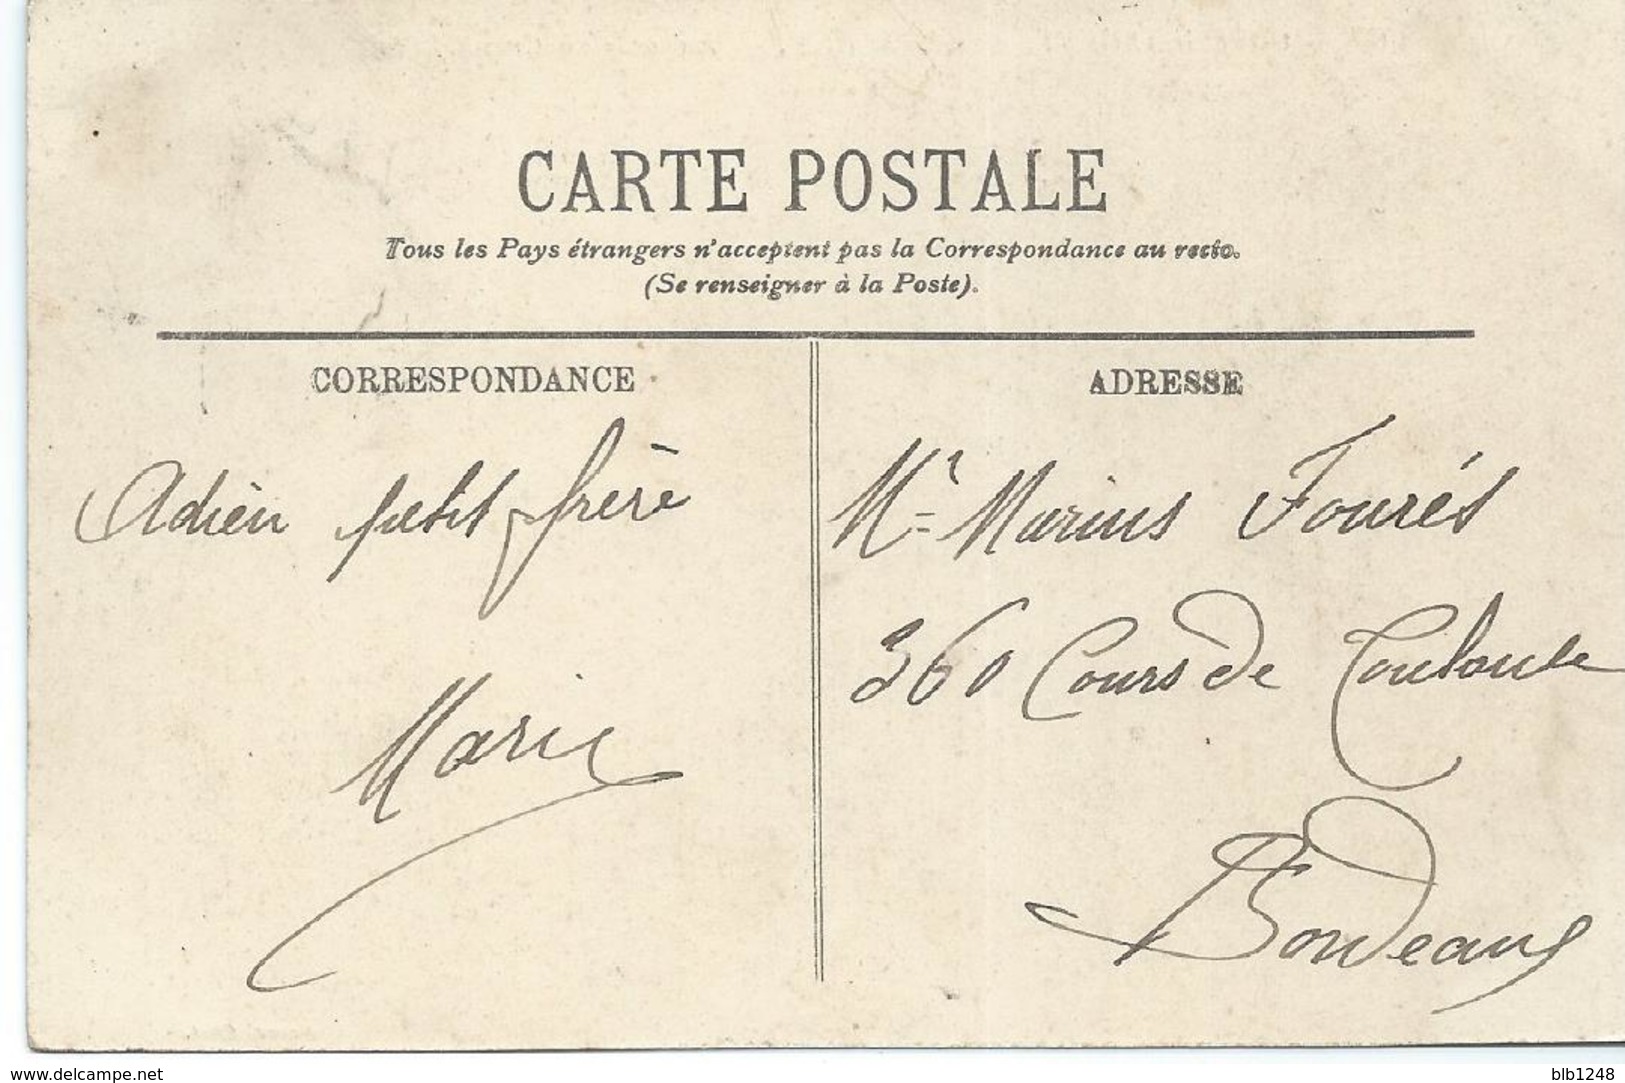 CARTE POSTALE
Tous les Pays étrangers n'acceptent pas la Correspondance au recto.
(Se renseigner à la Poste).
CORRESPONDANCE
Adieu petit frère
Marie
ADRESSE
Mr Marius Fourés
360 Cours de Toulouse
Bordeaux
www.delcampe.net
blb1248